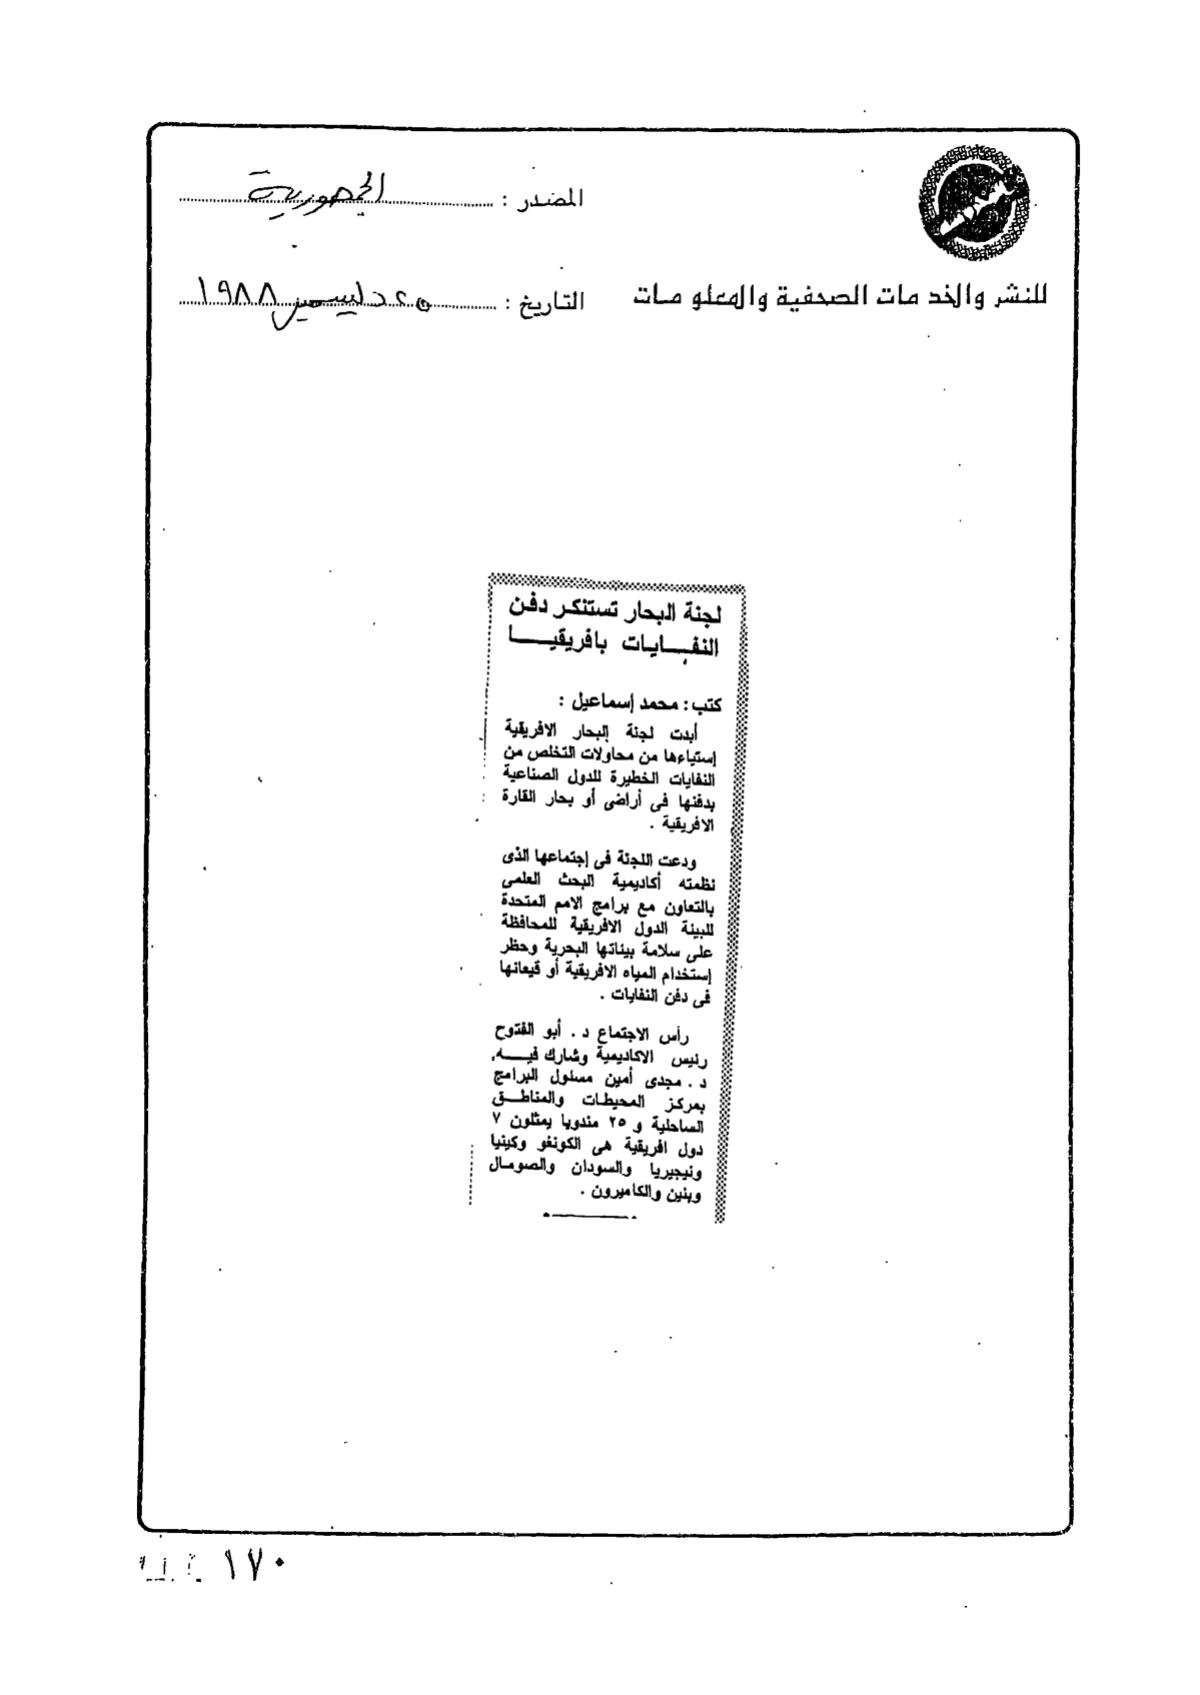 المصدر : الجمهورية
للنشر والخدمات الصحفية والمعلومات
التاريخ : ٢٥ ديسمبر ١٩٨٨
لجنة البحار تستنكر دفن
النفايات بافريقيا
كتب : محمد إسماعيل :
أبدت لجنة البحار الافريقية
إستياءها من محاولات التخلص من
النفايات الخطيرة للدول الصناعية
بدفنها فى أراضى أو بحار القارة
الافريقية .
ودعت اللجنة فى إجتماعها الذى
نظمته أكاديمية البحث العلمى
بالتعاون مع برامج الامم المتحدة
للبيئة الدول الافريقية للمحافظة
على سلامة بيئاتها البحرية وحظر
إستخدام المياه الافريقية أو قيعانها
فى دفن النفايات .
رأس الاجتماع د . أبو الفتوح
رئيس الاكاديمية وشارك فيه،
د . مجدى أمين مسئول البرامج
بمركز المحيطات والمناطق
الساحلية و ٢٥ مندوبا يمثلون ٧
دول افريقية هى الكونغو وكينيا
ونيجيريا والسودان والصومال
وبنين والكاميرون .
١٧٠